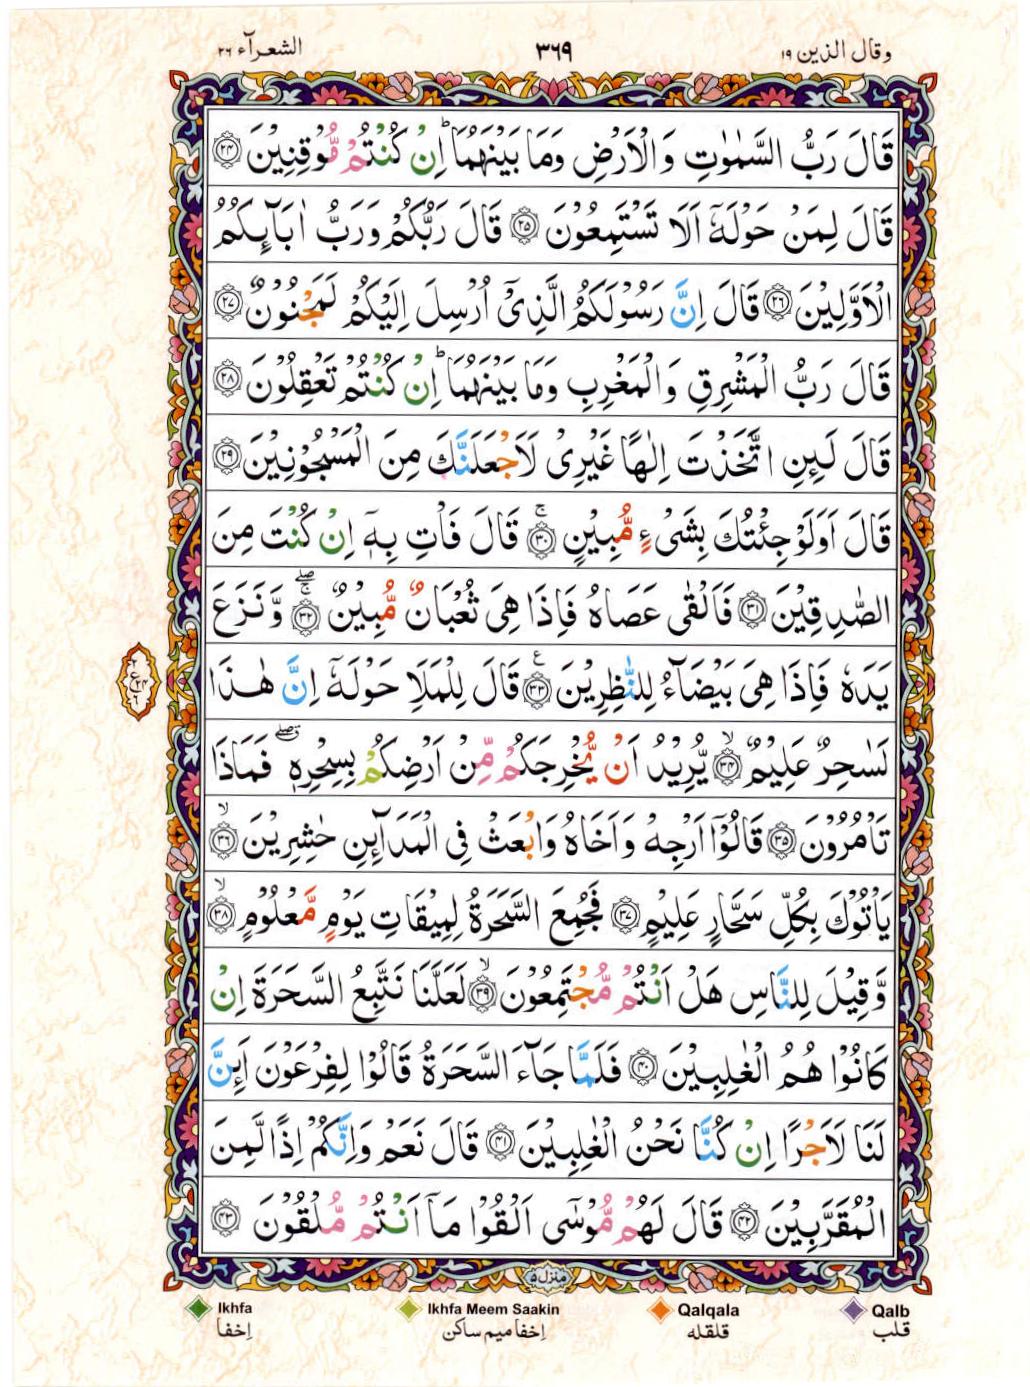 وقال الذين ١٩ ٣٦٩ الشعرآء ٢٦
قَالَ رَبُّ السَّمٰوٰتِ وَالْاَرْضِ وَمَا بَيْنَهُمَا ؕ اِنْ كُنْتُمْ مُّوْقِنِيْنَ ۝٢٤
قَالَ لِمَنْ حَوْلَهٗۤ اَلَا تَسْتَمِعُوْنَ ۝٢٥ قَالَ رَبُّكُمْ وَرَبُّ اٰبَآئِكُمُ
الْاَوَّلِيْنَ ۝٢٦ قَالَ اِنَّ رَسُوْلَكُمُ الَّذِيْۤ اُرْسِلَ اِلَيْكُمْ لَمَجْنُوْنٌ ۝٢٧
قَالَ رَبُّ الْمَشْرِقِ وَالْمَغْرِبِ وَمَا بَيْنَهُمَا ؕ اِنْ كُنْتُمْ تَعْقِلُوْنَ ۝٢٨
قَالَ لَئِنِ اتَّخَذْتَ اِلٰهًا غَيْرِيْ لَاَجْعَلَنَّكَ مِنَ الْمَسْجُوْنِيْنَ ۝٢٩
قَالَ اَوَلَوْ جِئْتُكَ بِشَيْءٍ مُّبِيْنٍ ۚ۝٣٠ قَالَ فَاْتِ بِهٖۤ اِنْ كُنْتَ مِنَ
الصّٰدِقِيْنَ ۝٣١ فَاَلْقٰى عَصَاهُ فَاِذَا هِيَ ثُعْبَانٌ مُّبِيْنٌ ۚۖ۝٣٢ وَّنَزَعَ
يَدَهٗ فَاِذَا هِيَ بَيْضَآءُ لِلنّٰظِرِيْنَ ۝٣٣ ع قَالَ لِلْمَلَاِ حَوْلَهٗۤ اِنَّ هٰذَا
لَسٰحِرٌ عَلِيْمٌ ۙ۝٣٤ يُّرِيْدُ اَنْ يُّخْرِجَكُمْ مِّنْ اَرْضِكُمْ بِسِحْرِهٖ ۖۗ فَمَاذَا
تَاْمُرُوْنَ ۝٣٥ قَالُوْۤا اَرْجِهْ وَاَخَاهُ وَابْعَثْ فِي الْمَدَآئِنِ حٰشِرِيْنَ ۙ۝٣٦
يَاْتُوْكَ بِكُلِّ سَحَّارٍ عَلِيْمٍ ۝٣٧ فَجُمِعَ السَّحَرَةُ لِمِيْقَاتِ يَوْمٍ مَّعْلُوْمٍ ۙ۝٣٨
وَّقِيْلَ لِلنَّاسِ هَلْ اَنْتُمْ مُّجْتَمِعُوْنَ ۙ۝٣٩ لَعَلَّنَا نَتَّبِعُ السَّحَرَةَ اِنْ
كَانُوْا هُمُ الْغٰلِبِيْنَ ۝٤٠ فَلَمَّا جَآءَ السَّحَرَةُ قَالُوْا لِفِرْعَوْنَ اَئِنَّ
لَنَا لَاَجْرًا اِنْ كُنَّا نَحْنُ الْغٰلِبِيْنَ ۝٤١ قَالَ نَعَمْ وَاِنَّكُمْ اِذًا لَّمِنَ
الْمُقَرَّبِيْنَ ۝٤٢ قَالَ لَهُمْ مُّوْسٰۤى اَلْقُوْا مَاۤ اَنْتُمْ مُّلْقُوْنَ ۝٤٣
منزل ٥
Ikhfa Ikhfa Meem Saakin Qalqala Qalb
اِخفا اِخفا میم ساکن قلقله قلب